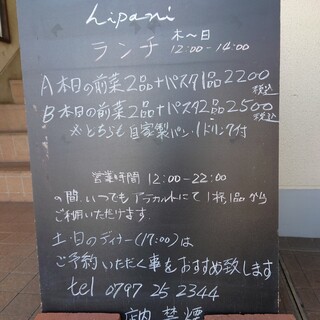 Lipani
ランチ 木〜日 12:00-14:00
A 本日の前菜2品+パスタ1品 2200 税込
B 本日の前菜2品+パスタ2品 2500 税込
※どちらも自家製パン・1ドリンク付
営業時間 12:00-22:00
の間、いつでもアラカルトにて1杯、1品から
ご利用いただけます。
土・日のディナー(17:00)は
ご予約いただく事をおすすめ致します
tel 0797 25 2344
店内 禁煙